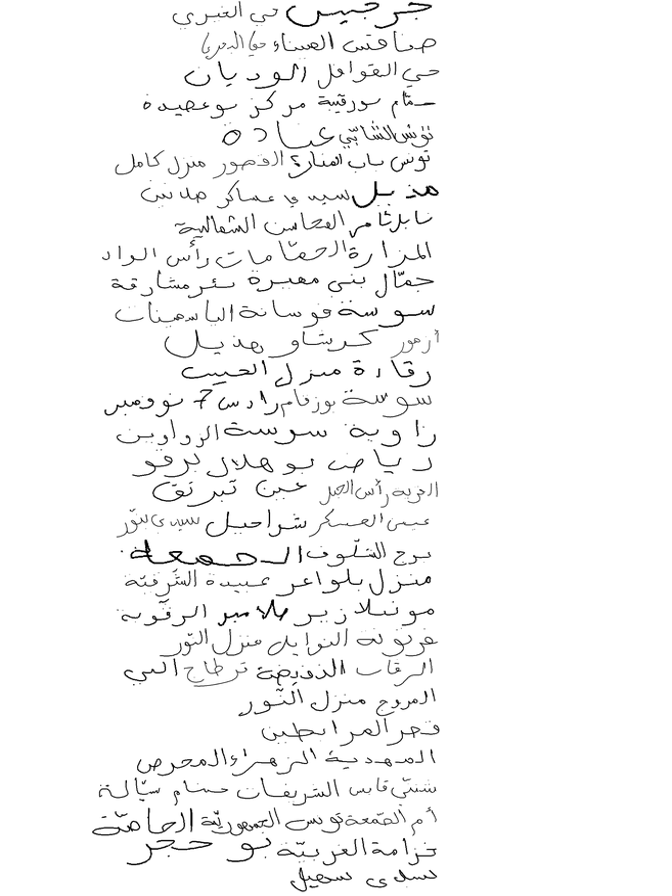 جرجيس حي الخبري
صفاقس الميناء
حي القوافل الوديان
حمام بورقيبة مركز بوعصيدة
تونس الشابي عبادة
تونس باب المنارة القصور منزل كامل
هذيل سيدي عساكر
نابل ثامر المحاسن الشمالية
المزارة الحمامات رأس الواد
جمال بني مغيرة بئر مشارقة
سوسة فوسانة الياسمينات
كرشاو هذيل
رقادة منزل الحبيب
سوسة بوزقام رادس 7 نوفمبر
زاوية سوسة الزواوين
رياض بوهلال برقو
القرية رأس الجبل عين تبرنق
العسكر شراحيل سيدي بنور
برج الخلوف الجمعة
منزل بلواعر عبيدة الشرفية
مونبلازير ملامير الرقوبة
النوايل منزل النور
الرقاب النفيضة قرطاج
المروج منزل النور
قصر المرابطين
المهدية الزهراء المحرص
شنني قابس الشريفات حسام سيالة
تونس الجمهورية الحامة
خزامة الغربية بو حجر
سيدي سهيل